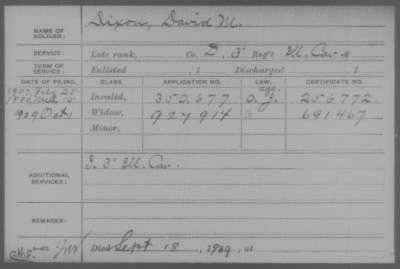 NAME OF SOLDIER: Dixon, David M.
SERVICE: Late rank, Co. D, 3" Reg't Ill. Cav.
TERM OF SERVICE: Enlisted , 1 Discharged , 1
DATE OF FILING. CLASS. APPLICATION NO. LAW. CERTIFICATE NO.
1907 Feb 25 age.
Invalid, 350,677 256,772.
1909 Oct 1 Widow, 927,914 691467
Minor,
ADDITIONAL SERVICES: I. 3" Ill. Cav.
REMARKS:
Died Sept 18, 1909, at